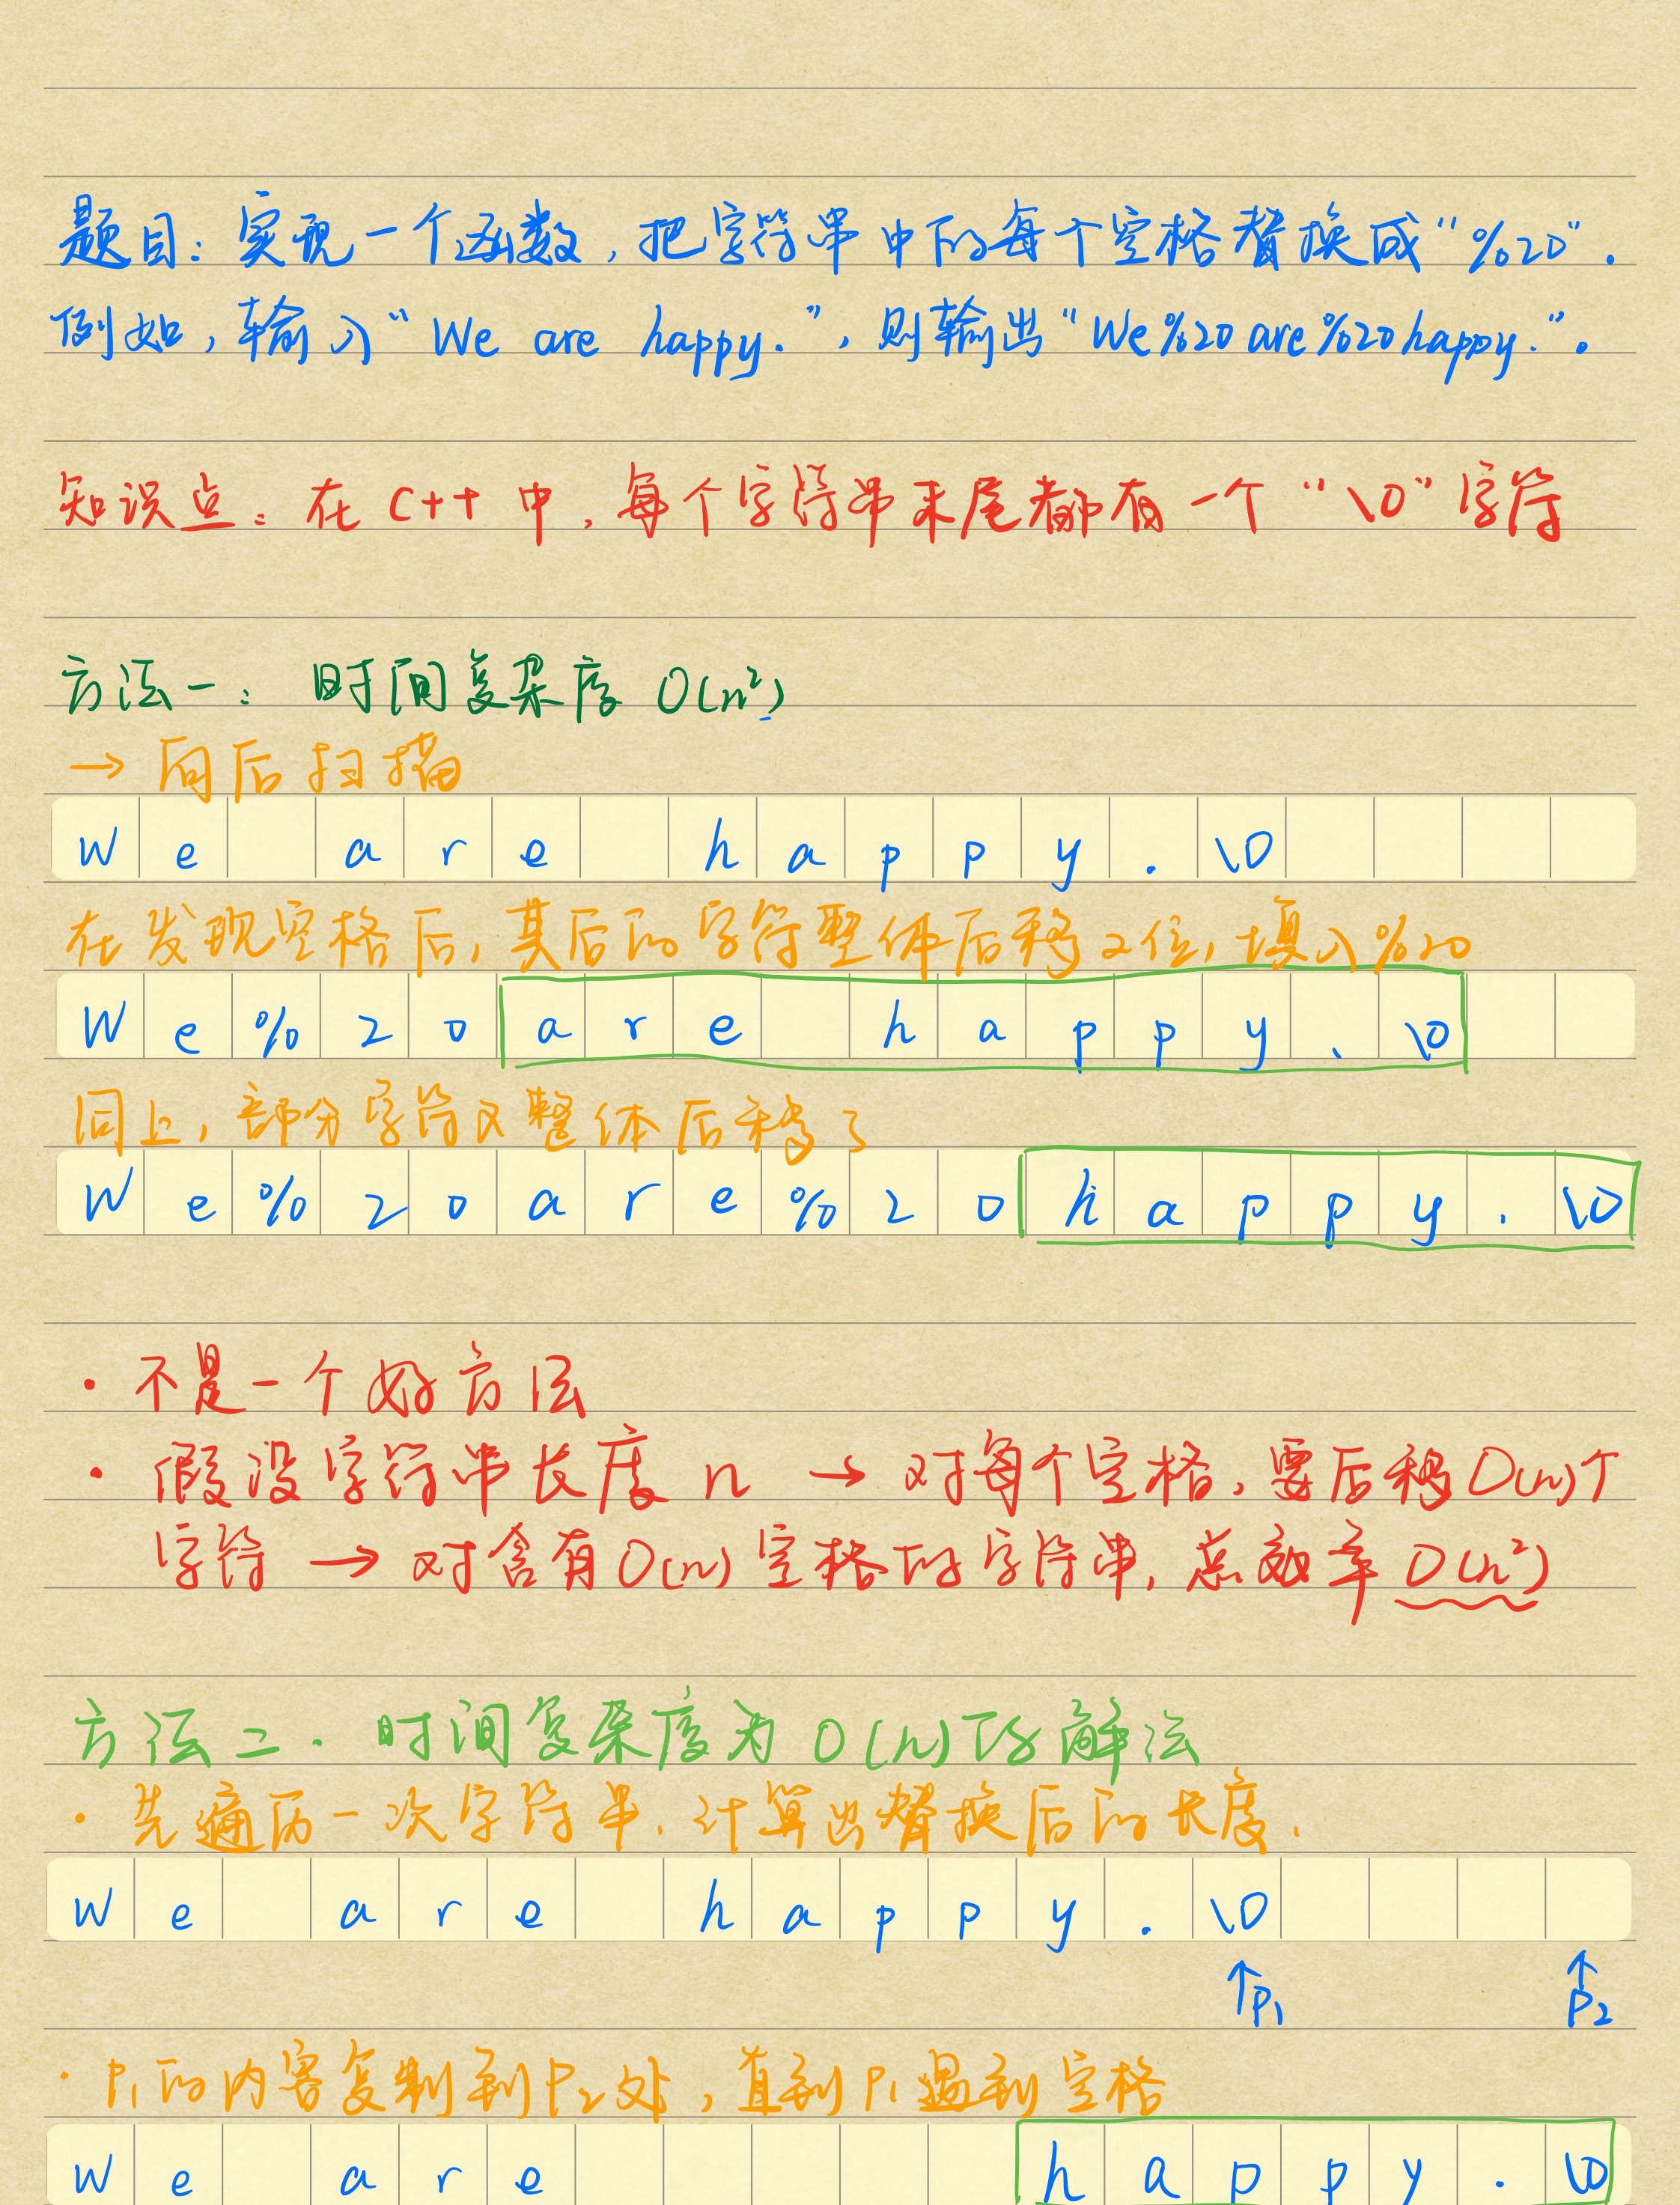 题目：实现一个函数，把字符串中的每个空格替换成“%20”.
例如，输入“We are happy.”，则输出“We%20are%20happy.”。
知识点：在C++中，每个字符串末尾都有一个“\0”字符
方法一：时间复杂度 O(n²)
→ 向后扫描
W e a r e h a p p y . \0
在发现空格后，其后的字符整体后移2位，填入%20
W e % 2 0 a r e h a p p y . \0
同上，部分字符又整体后移了
W e % 2 0 a r e % 2 0 h a p p y . \0
· 不是一个好方法
· 假设字符串长度 n → 对每个空格，要后移O(n)个
字符 → 对含有O(n)空格的字符串，总效率 O(n²)
方法二. 时间复杂度为 O(n)的解法
· 先遍历一次字符串，计算出替换后的长度.
W e a r e h a p p y . \0
↑P1 ↑P2
· P1的内容复制到P2处，直到P1遇到空格
W e a r e h a p p y . \0